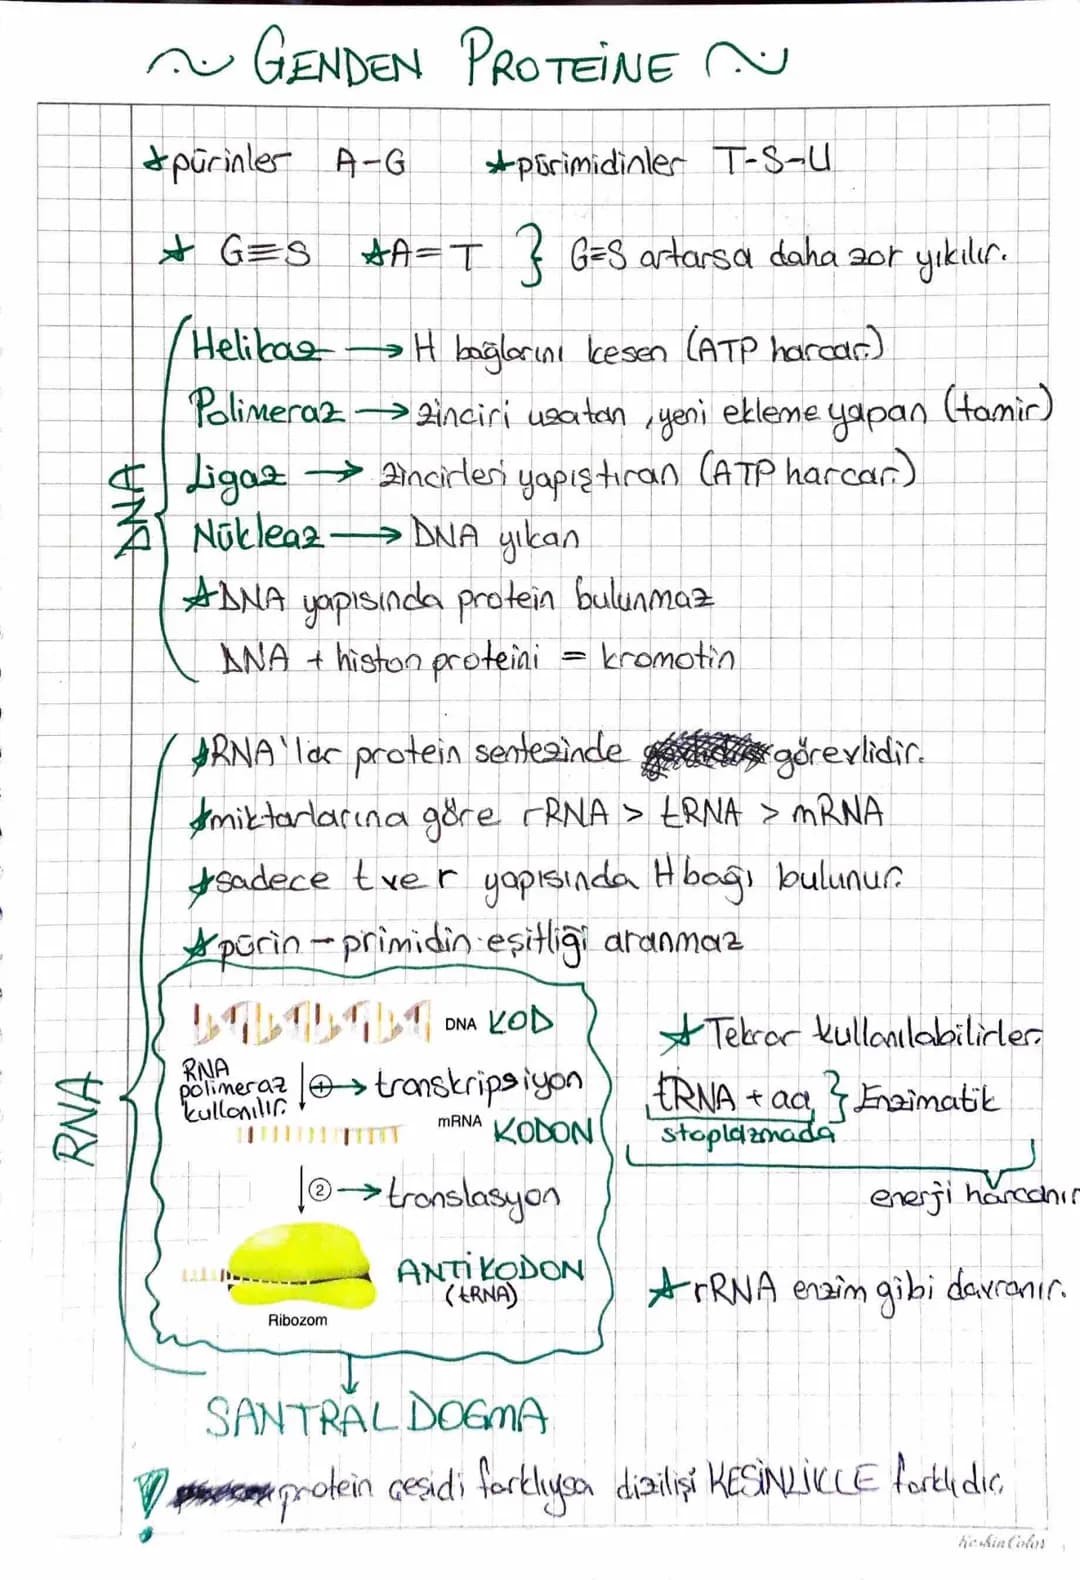 GENDEN PROTEİNE
pürinler A-G
pürimidinler T-S-U
G≡S A=T } G≡S artarsa daha zor yıkılır.
DNA
Helikaz → H bağlarını kesen (ATP harcar.)
Polimeraz → zinciri uzatan, yeni ekleme yapan (tamir)
Ligaz → zincirleri yapıştıran (ATP harcar.)
Nükleaz → DNA yıkan
DNA yapısında protein bulunmaz
DNA + histon proteini = kromotin
RNA
RNA'lar protein sentezinde görevlidir.
miktarlarına göre rRNA > tRNA > mRNA
sadece t ve r yapısında H bağı bulunur.
pürin - primidin eşitliği aranmaz
DNA KOD
RNA
polimeraz
kullanılır.
① → transkripsiyon
mRNA KODON
② → translasyon
ANTİKODON
(tRNA)
Ribozom
Tekrar kullanılabilirler.
tRNA + aa } Enzimatik
stoplazmada
enerji harcanır
rRNA enzim gibi davranır.
SANTRAL DOGMA
! protein çeşidi farklıysa dizilişi KESİNLİKLE farklıdır.
KeskinColor